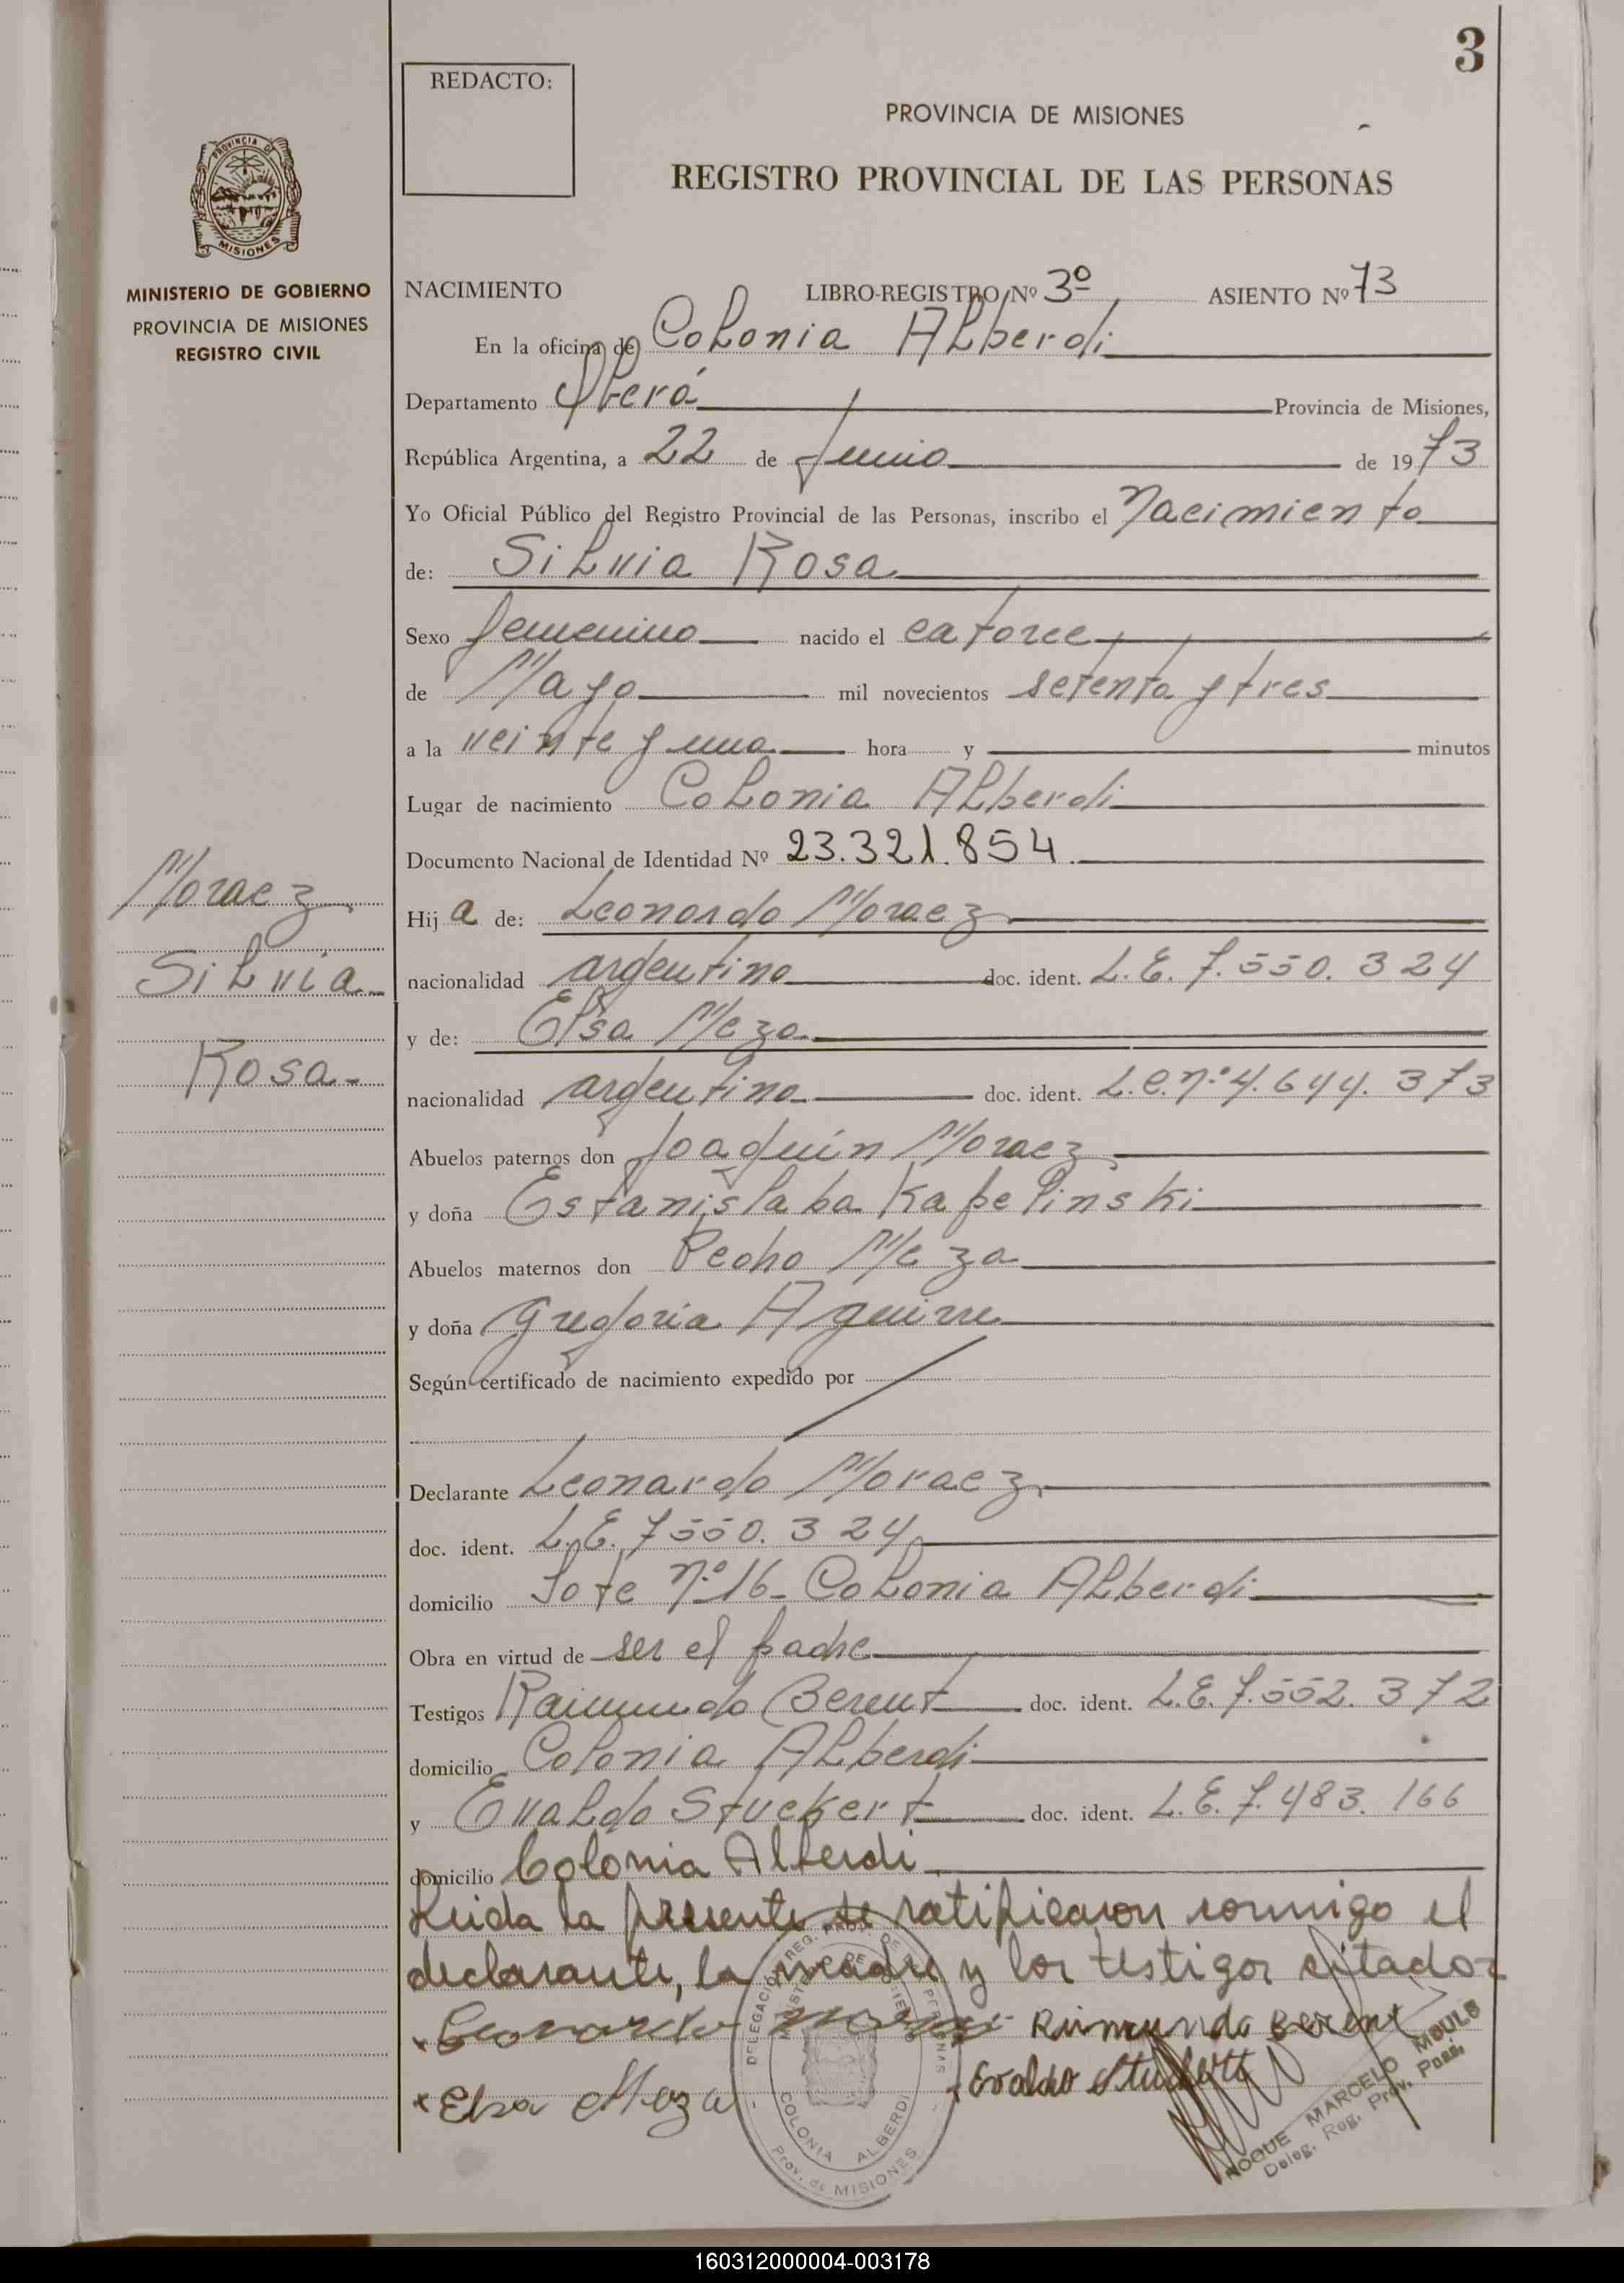 3
REDACTO:
PROVINCIA DE MISIONES
REGISTRO PROVINCIAL DE LAS PERSONAS
PROVINCIA DE
MISIONES
MINISTERIO DE GOBIERNO
PROVINCIA DE MISIONES
REGISTRO CIVIL
NACIMIENTO LIBRO-REGISTRO Nº 3º ASIENTO Nº 73
En la oficina de Colonia Alberdi
Departamento Oberá Provincia de Misiones,
República Argentina, a 22 de Junio de 1973
Yo Oficial Público del Registro Provincial de las Personas, inscribo el Nacimiento
de: Silvia Rosa
Sexo femenino nacido el catorce
de Mayo mil novecientos setenta y tres
a la veinte y una hora y minutos
Lugar de nacimiento Colonia Alberdi
Documento Nacional de Identidad Nº 23.321.854
Moraez
Silvia
Rosa-
Hija de: Leonardo Moraez
nacionalidad argentina doc. ident. L.E. 7.550.324
y de: Elsa Meza
nacionalidad argentina doc. ident. L.C. nº 4.644.373
Abuelos paternos don Joaquín Moraez
y doña Estanislaba Kapelinski
Abuelos maternos don Pedro Meza
y doña Gregoria Aguirre
Según certificado de nacimiento expedido por
Declarante Leonardo Moraez
doc. ident. L.E. 7550.324
domicilio Lote nº 16- Colonia Alberdi
Obra en virtud de ser el padre
Testigos Raimundo Berent doc. ident. L.E. 7.552.372
domicilio Colonia Alberdi
y Evaldo Stuckert doc. ident. L.E. 7.483.166
domicilio Colonia Alberdi
Leida la presente se ratificaron conmigo el
declarante, la madre y los testigos citados
Leonardo Raimundo Berent
Elsa Meza Evaldo
DELEGACIÓN REG. PROV. DE D PERSONAS
COLONIA ALBERDI
Prov. de MISIONES
ROQUE MARCELO MOULS
Deleg. Reg. Prov. Pers.
160312000004-003178